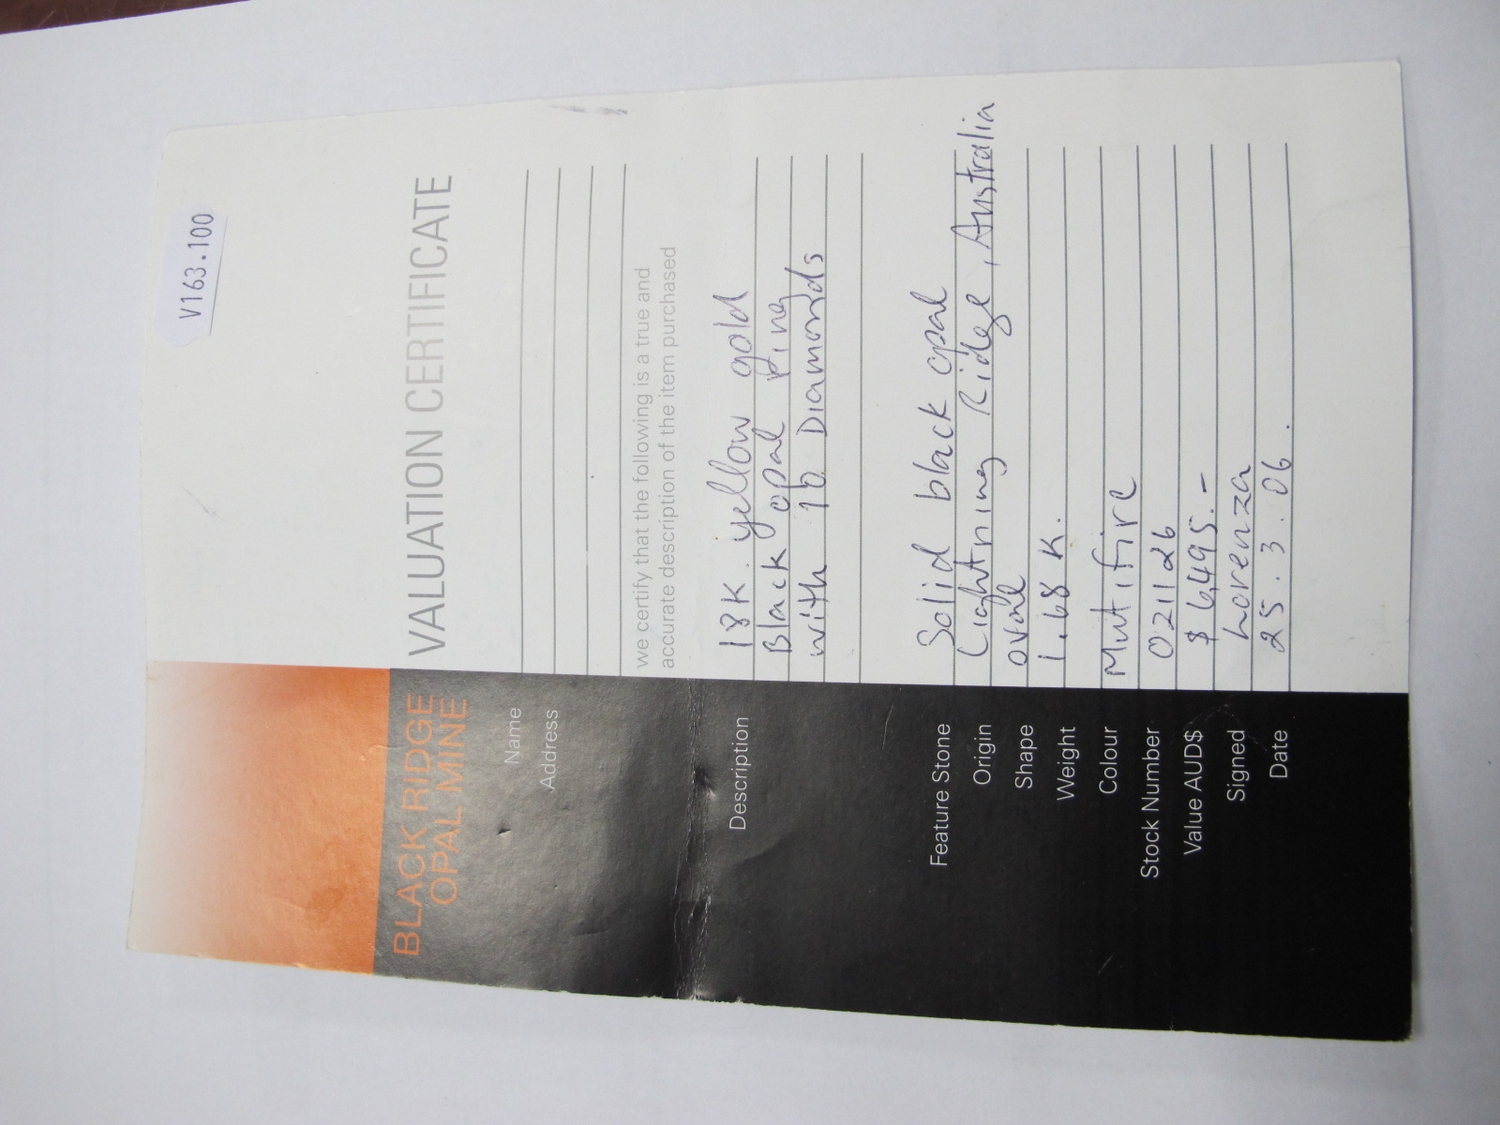 V163.100
BLACK RIDGE
OPAL MINE
VALUATION CERTIFICATE
Name
Address
we certify that the following is a true and
accurate description of the item purchased
Description 18K. yellow gold
Black opal Ring
with 16 Diamonds
Feature Stone Solid black opal
Origin Lightning Ridge, Australia
Shape oval
Weight 1.68 K.
Colour Mutifire
Stock Number 021126
Value AUD$ $ 6,495.-
Signed Lorenza
Date 25.3.06.